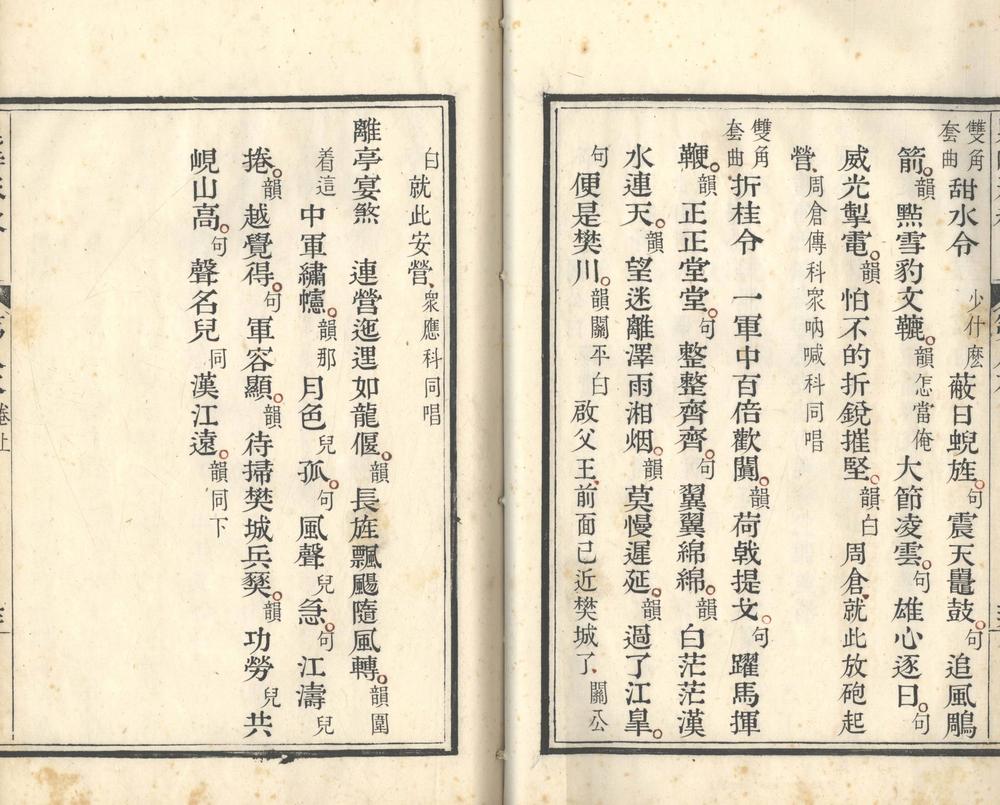 雙角套曲 甜水令 少什麼蔽日蜺旌句震天鼉鼓句追風鵰
箭韻黰雪豹文韉韻怎當俺大節凌雲句雄心逐日句
威光掣電韻怕不的折銳摧堅韻白周倉就此放砲起
營周倉傳科衆吶喊科同唱
雙角套曲 折桂令 一軍中百倍歡闐韻荷戟提戈句躍馬揮
鞭韻正正堂堂句整整齊齊句翼翼綿綿韻白茫茫漢
水連天韻望迷離澤雨湘烟韻莫慢遲延韻過了江臯
句便是樊川韻關平白啟父王前面已近樊城了關公
白就此安營衆應科同唱
離亭宴煞 連營迤逦如龍偃韻長旌飄颺隨風轉韻圍
着這中軍繡幰韻那月色兒孤句風聲兒急句江濤兒
捲韻越覺得句軍容顯韻待掃樊城兵燹韻功勞兒共
峴山高句聲名兒同漢江遠韻同下
卷上